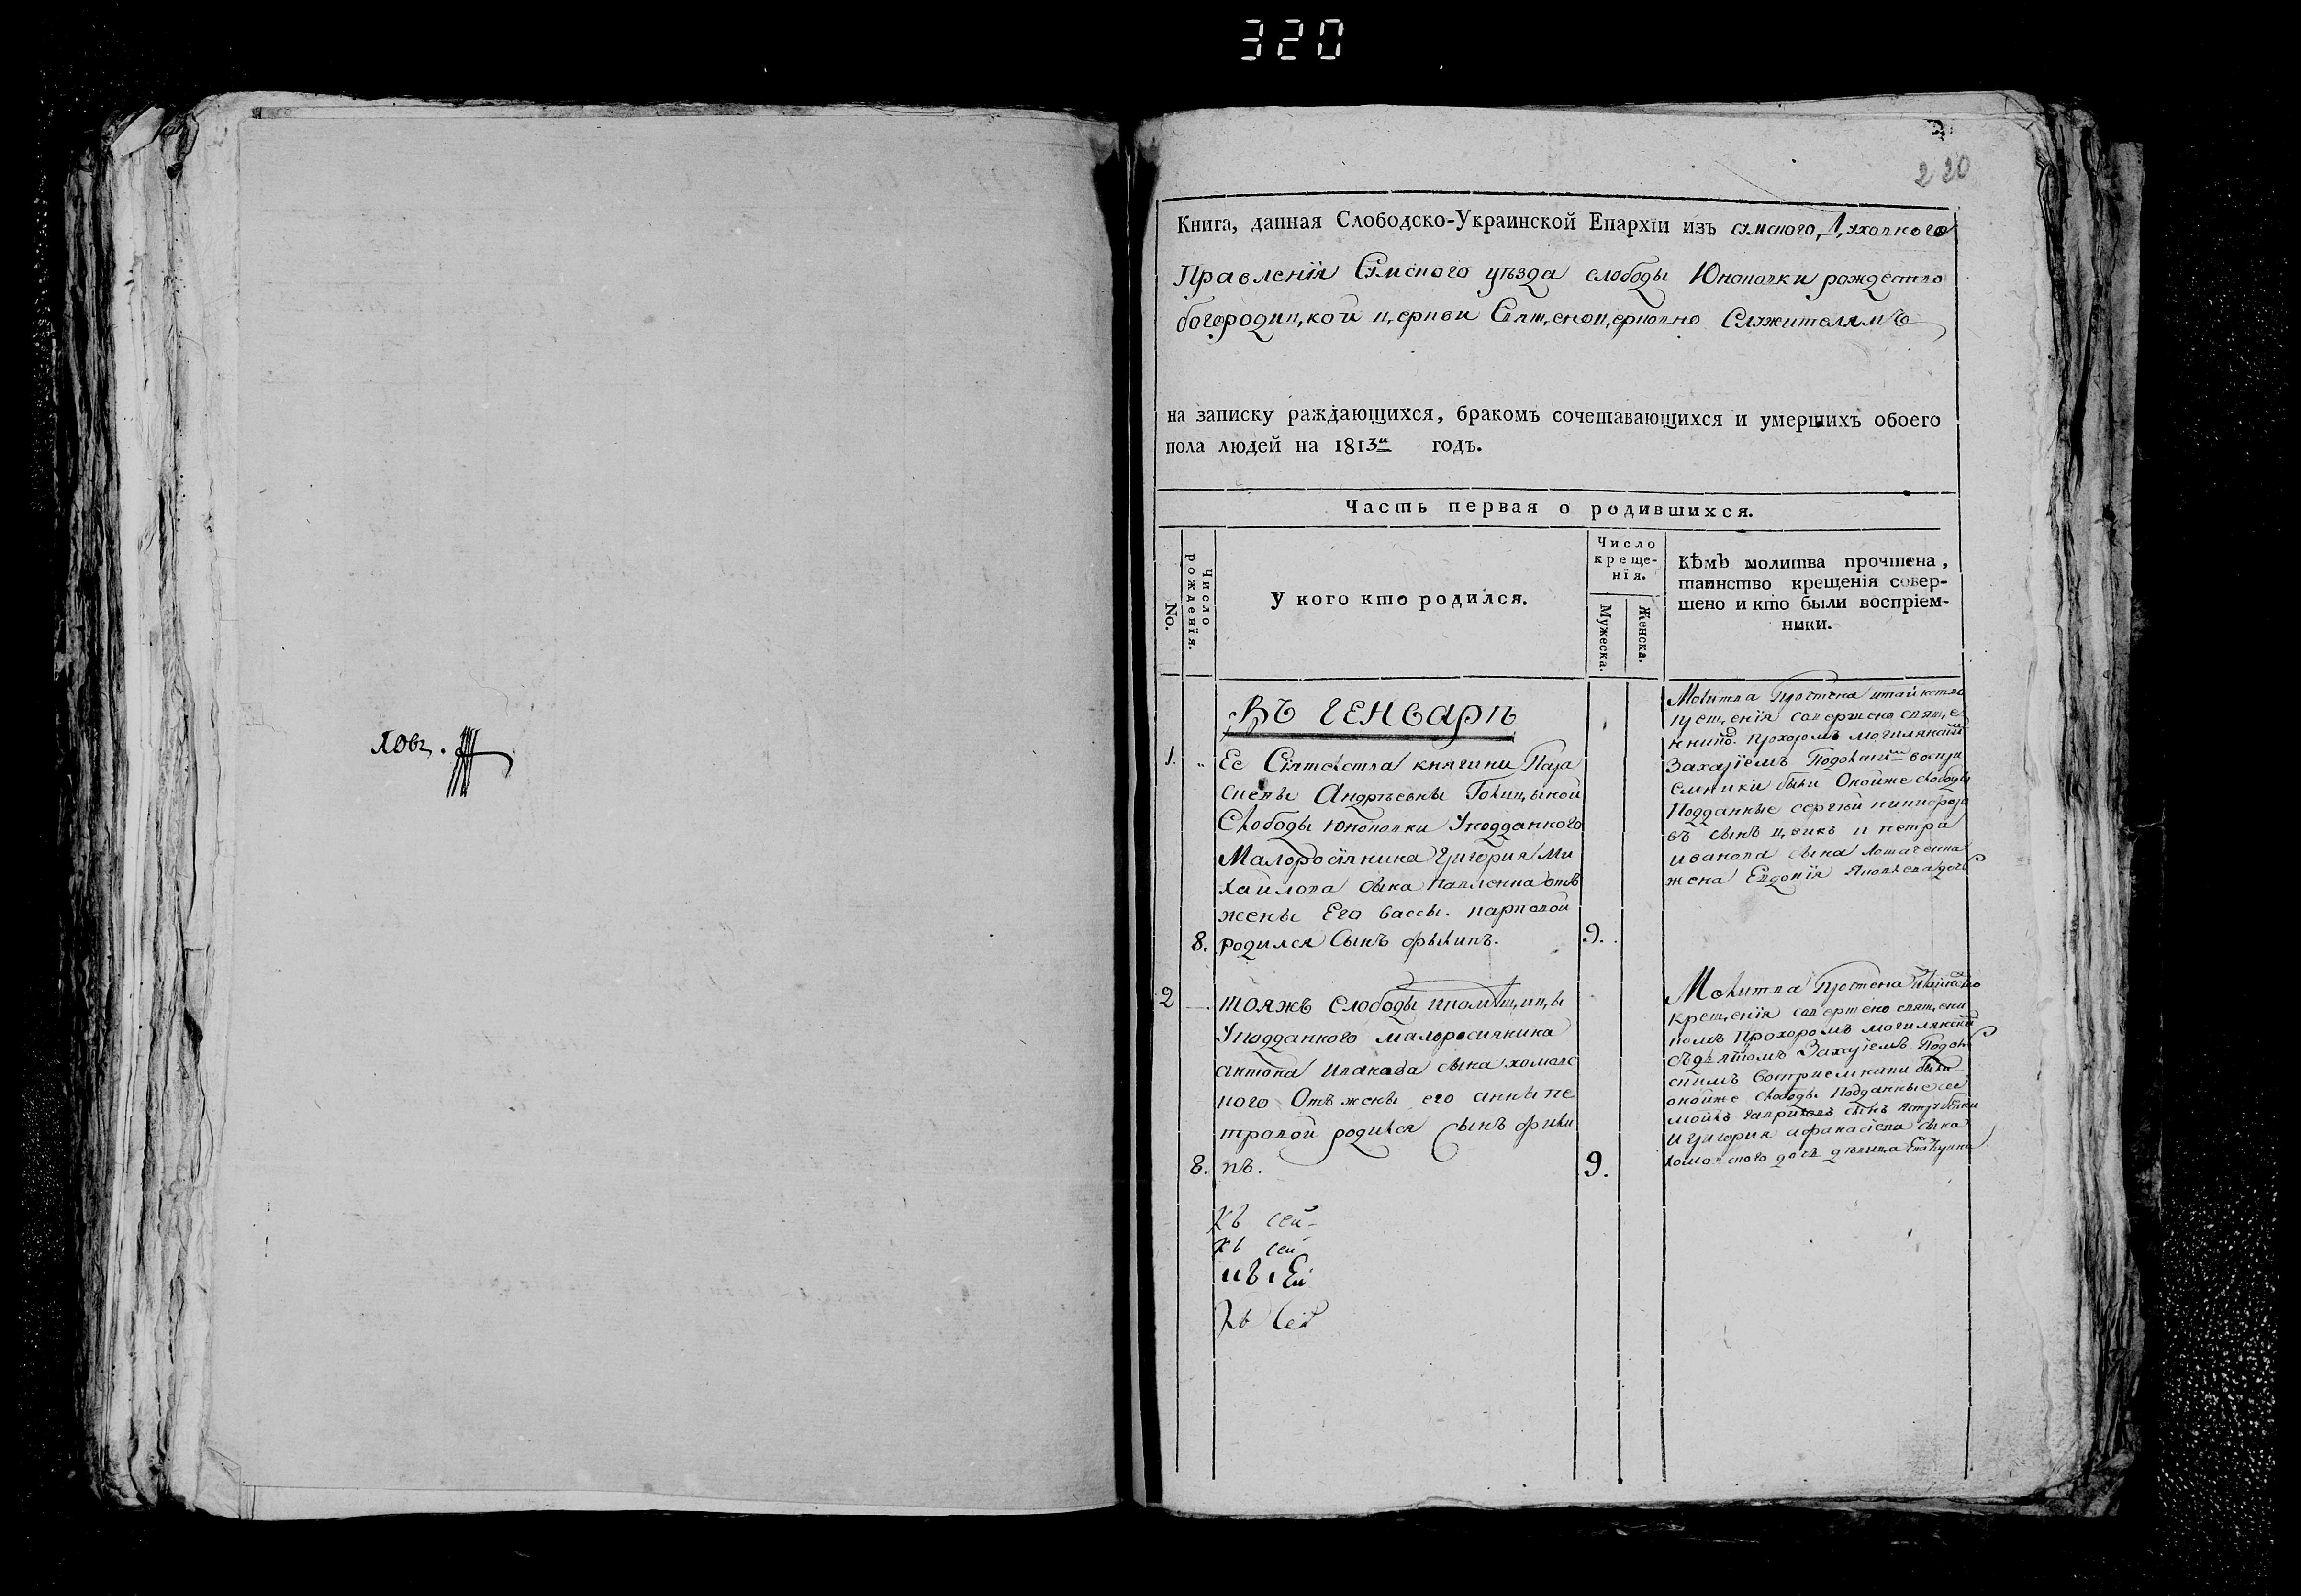 320
220
Книга, данная Слободско-Украинской Епархїи изъ сумскаго, Духовного
Правленїя Сумского уѣзда слободы Юнаковки рождество
богородицкой церкви Священоцерковно Служителямъ
на записку раждающихся, бракомъ сочетавающихся и умершихъ обоего
пола людей на 1813й годъ.
Часть первая о родившихся.
No.
Число рожденїя.
У кого кто родился.
Число
креще-
нїя.
Мужеска.
Женска.
Кѣмъ молитва прочтена,
таинство крещенїя совер-
шено и кто были воспрїем-
ники.
Въ генварѣ
1.
Ее Сїятелства княгини Пара
скевы Андрѣевны Голицыной
Слободы Юнаковки Уподданного
Малоросїянина Григория Ми
хайлова сына Павленка отъ
жены Его Вассы. карповой
8. родился Сынъ филипъ. 9.
Молитва Прочтена итаинство
крещенїя совершено свяще
Прохоромъ могилянскїм
Захарїемъ воспри
емники были Оноиже слободы
Подданные сергѣй никифоро
въ сынъ и петра
иванова сына
жена Евдокїя Яковлева дочь
2
тояжъ Слободы ипомѣщицы
Уподданного малоросиянина
антона ивакова сына хомовс
кого Отъ жены его анны пе
тровой родился Сынъ фили
8. пъ. 9.
Молитва Прочтена итаинство
крещенїя совершено священи
комъ Прохоромъ могилянским
съдьяком Захарїемъ Подол
ским Восприемники были
оноиже слободы Подданные
сынъ
и григория афанасїева сына
хомовского дочь девица
Къ сей
Къ сей
Къ сей